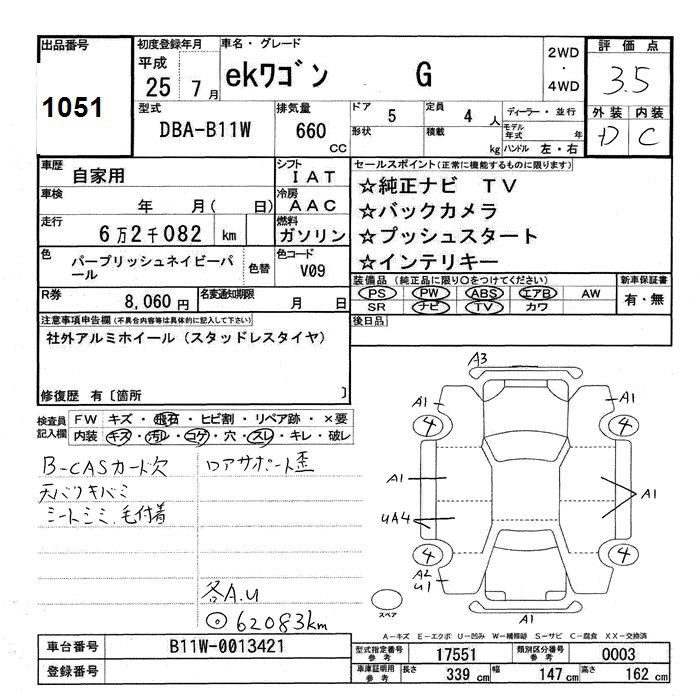 出品番号
1051
初度登録年月
平成
25 7月
車名・グレード
ekワゴン G
2WD
・
4WD
評価点
3.5
外装 内装
D C
型式
DBA-B11W
排気量
660
CC
ドア 5
定員 4 人
ディーラー・並行
形状
積載 kg
モデル年式 年
ハンドル 左・右
車歴
自家用
シフト
IAT
車検
年 月( 日)
冷房
AAC
走行
6万2千082 km
燃料
ガソリン
色
パープリッシュネイビーパ
ール
色替
色コード
V09
R券
8,060円
名変通知期限
月 日
セールスポイント(正常に機能するものに限ります)
☆純正ナビ TV
☆バックカメラ
☆プッシュスタート
☆インテリキー
装備品(純正品に限り○をつけてください)
PS PW ABS エアB AW
SR ナビ TV カワ
新車保証書
有・無
後日品
注意事項申告欄(不具合内容等は具体的に記入して下さい)
社外アルミホイール(スタッドレスタイヤ)
修復歴 有〔箇所 〕
検査員
記入欄
FW キズ・飛石・ヒビ割・リペア跡・×要
内装 キズ・汚れ・コゲ・穴・スレ・キレ・破レ
B-CASカード欠
天バリキバミ
シートシミ、毛付着
ロアサポート歪
各A.U
◎62083km
A3
A1 A1
4 4
A1 A1
UA4
4 4
A2
U1
A1
スペア
A-キズ E-エクボ U-凹み W-補修跡 S-サビ C-腐食 XX-交換済
車台番号
B11W-0013421
登録番号
型式指定番号
参考
17551
類別区分番号
参考
0003
車庫証明用
参考
長さ 339 cm
幅 147 cm
高さ 162 cm